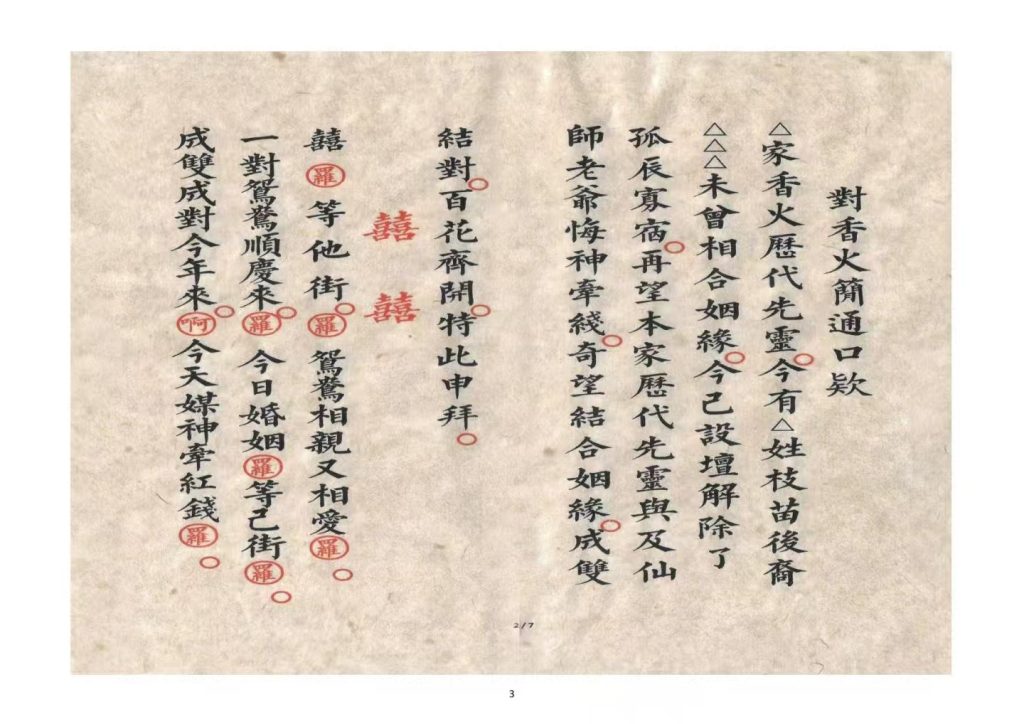 對香火簡通口欵
△家香火歷代先靈○今有△姓枝苗後裔
△△△未曾相合姻緣○今己設壇解除了
孤辰寡宿○再望本家歷代先靈與及仙
師老爺悔神牽綫○奇望結合姻緣○成雙
結對○百花齊開○特此申拜○
囍 囍
囍㊀羅等他街○羅鴛鴦相親又相愛羅○
一對鴛鴦順慶來○羅今日婚姻羅等己街羅○
成雙成對今年來○啊今天媒神牽紅錢羅○
2/7
3